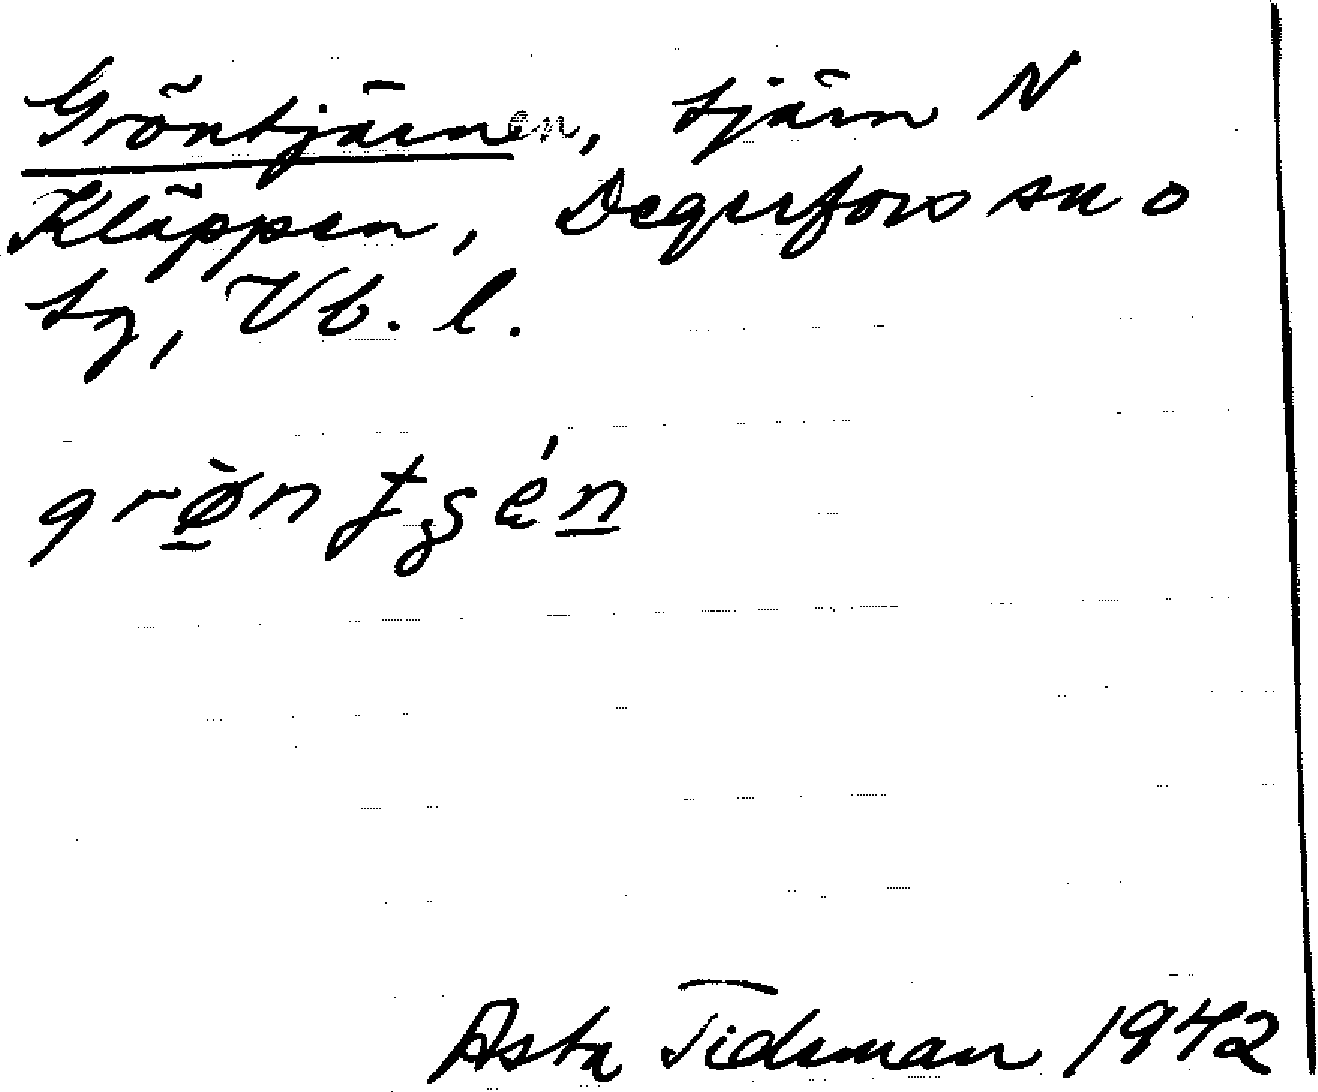 Gröntjärnen, tjärn N
Kläppen, Degerfors sn o
tg, Vb. l.
Asta Tidsman 1942